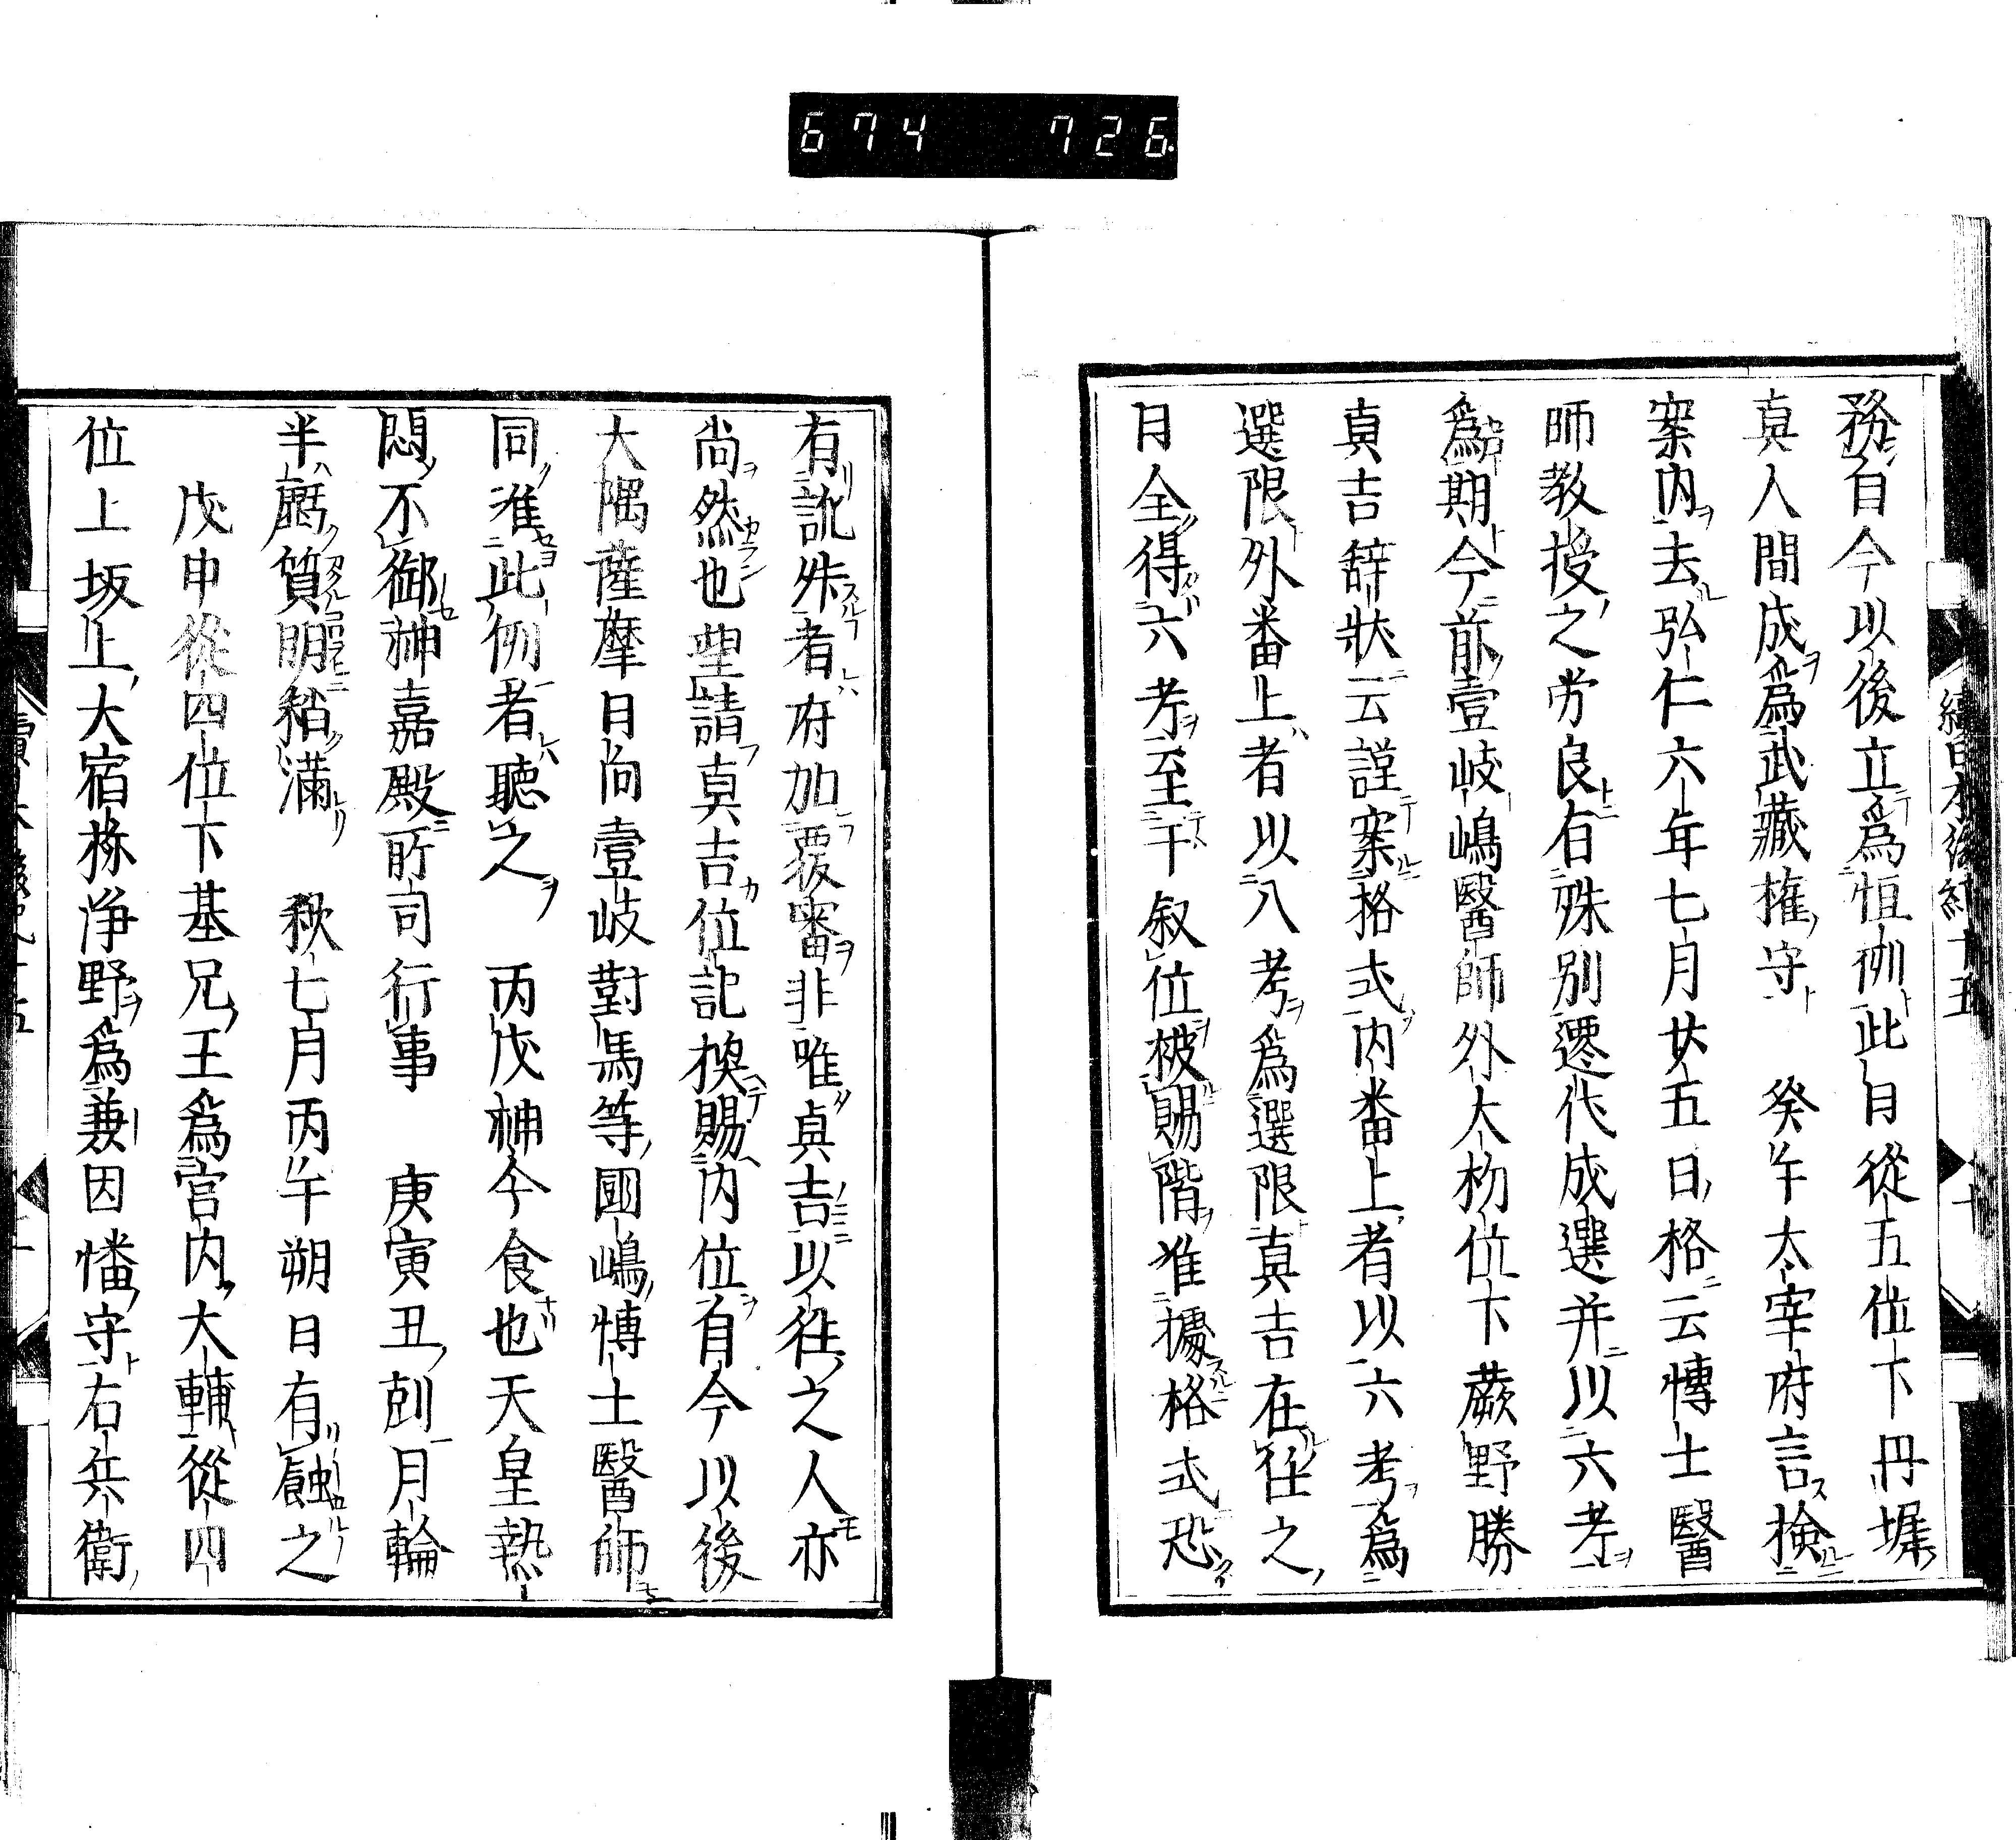 674 726
續日本後紀十五 十
務自今以後立爲恒例此日從五位下丹墀
真人間成爲武藏權守 癸午太宰府言檢
案内去弘仁六年七月廿五日格云博士醫
師教授之労良有殊別遷代成選并以六考
爲期今前壹岐嶋醫師外大初位下蕨野勝
真吉辞狀云謹案格式内番上者以六考爲
選限外番上者以八考爲選限真吉在任之
日全得六考至于叙位被賜階准據格式恐
有訛舛者府加覆審非唯真吉以往之人亦
尚然也望請真吉位記換賜内位自今以後
大隅薩摩日向壹岐對馬等國嶋博士醫師
同准此例者聽之 丙戌神今食也天皇熱
悶不御神嘉殿所司行事 庚寅丑剋月輪
半蝕質明稍滿 秋七月丙午朔日有蝕之
戊申從四位下基兄王爲宮内大輔從四
位上坂上大宿祢浄野爲兼因幡守右兵衛